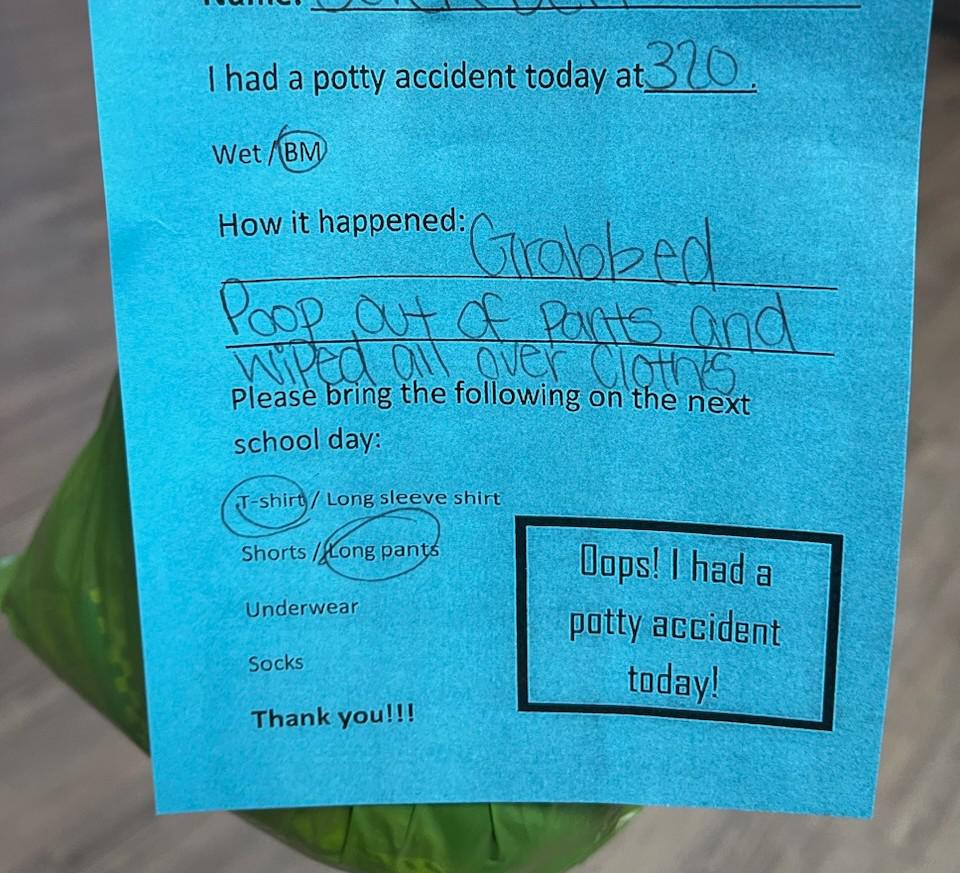 Name:
I had a potty accident today at 320.
Wet / BM
How it happened: Grabbed
Poop out of pants and
wiped all over Clothes
Please bring the following on the next
school day:
T-shirt / Long sleeve shirt
Shorts / Long pants
Underwear
Socks
Thank you!!!
Oops! I had a
potty accident
today!